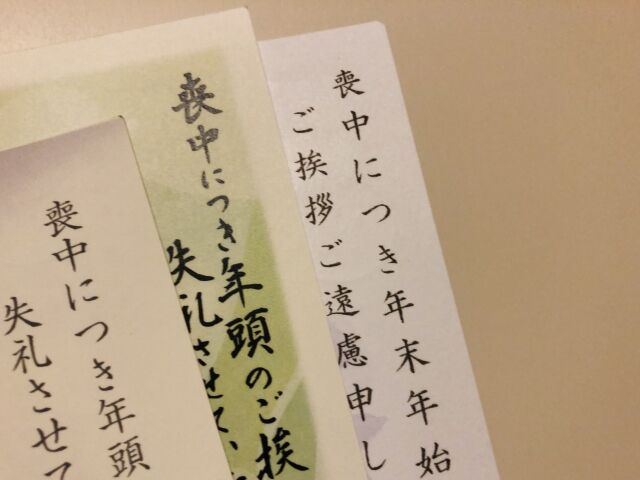 喪中につき年末年始
ご挨拶ご遠慮申し
喪中につき年頭のご挨
失礼させて
喪中につき年頭
失礼させて